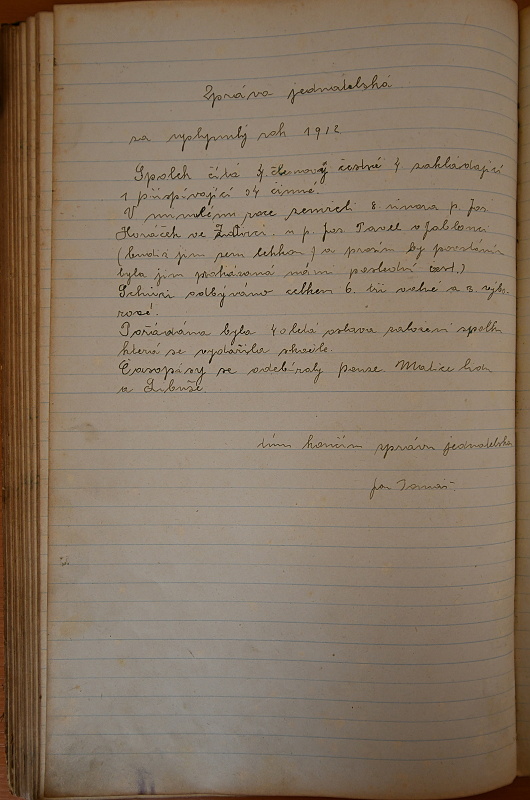 Zpráva jednatelská
za uplynulý rok 1912
Spolek čítá 4 členový čestné 4 zakládající
1 přispívající 54 činné.
V minulém roce zemřeli 8. února p. Jos.
Horáček ve Ždírci. a p. Jos. Pavel v Jablonci
(budiž jim zem lehkou) a prosím by povstáním
byla jim prokázaná námi poslední čest.)
Schůzí odbýváno celkem 6. tři valné a 3. výbo-
rové.
Pořádána byla 40letá oslava založení spolku
která se vydařila skvěle.
Časopisy se odebíraly pouze Matice lidu
a Libuše.
tímto končím zprávu jednatelskou
Jos Tomáš